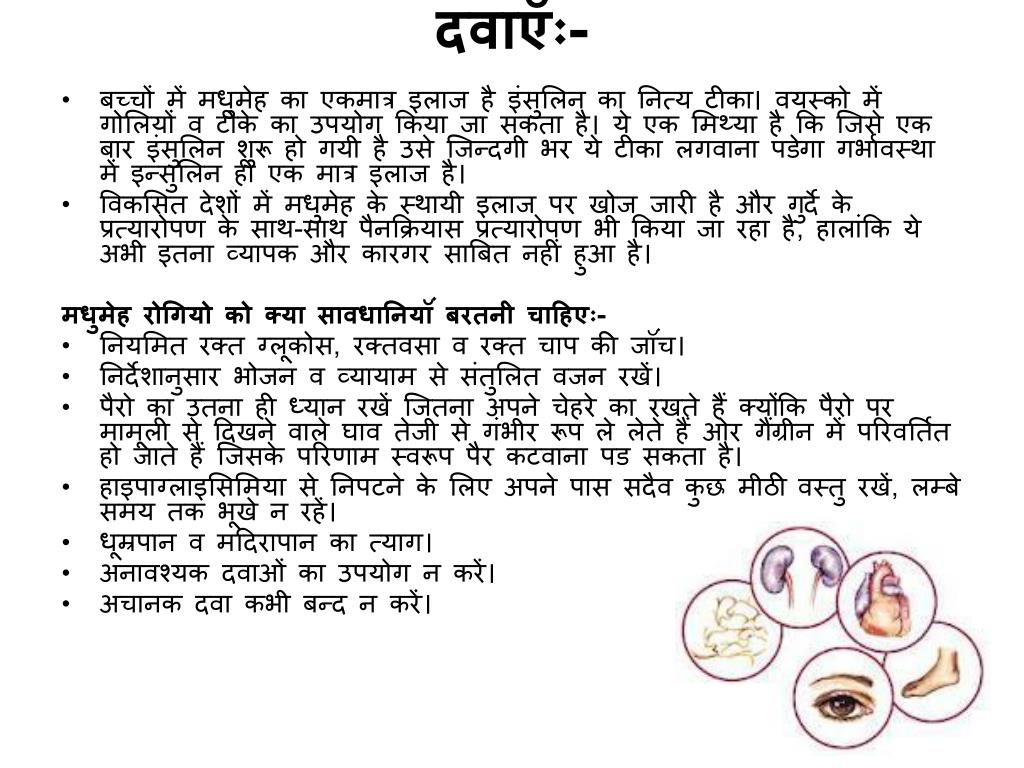 दवाएँः-
• बच्चों में मधुमेह का एकमात्र इलाज है इंसुलिन का नित्य टीका। वयस्को में
गोलियों व टीके का उपयोग किया जा सकता है। ये एक मिथ्या है कि जिसे एक
बार इंसुलिन शुरू हो गयी है उसे जिन्दगी भर ये टीका लगवाना पडेगा गर्भावस्था
में इन्सुलिन ही एक मात्र इलाज है।
• विकसित देशों में मधुमेह के स्थायी इलाज पर खोज जारी है और गुर्दे के
प्रत्यारोपण के साथ-साथ पैनक्रियास प्रत्यारोपण भी किया जा रहा है, हालांकि ये
अभी इतना व्यापक और कारगर साबित नहीं हुआ है।
मधुमेह रोगियो को क्या सावधानियाॅं बरतनी चाहिएः-
• नियमित रक्त ग्लूकोस, रक्तवसा व रक्त चाप की जाॅंच।
• निर्देशानुसार भोजन व व्यायाम से संतुलित वजन रखें।
• पैरो का उतना ही ध्यान रखें जितना अपने चेहरे का रखते हैं क्योंकि पैरो पर
मामूली से दिखने वाले घाव तेजी से गंभीर रूप ले लेते हैं ओर गैंग्रीन में परिवर्तित
हो जाते हैं जिसके परिणाम स्वरूप पैर कटवाना पड सकता है।
• हाइपाग्लाइसिमिया से निपटने के लिए अपने पास सदैव कुछ मीठी वस्तु रखें, लम्बे
समय तक भूखे न रहें।
• धूम्रपान व मदिरापान का त्याग।
• अनावश्यक दवाओं का उपयोग न करें।
• अचानक दवा कभी बन्द न करें।